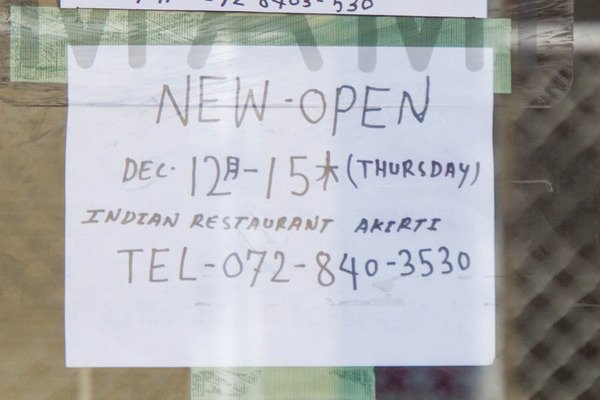 NEW-OPEN
DEC. 12月-15木(THURSDAY)
INDIAN RESTAURANT AKIRTI
TEL-072-840-3530